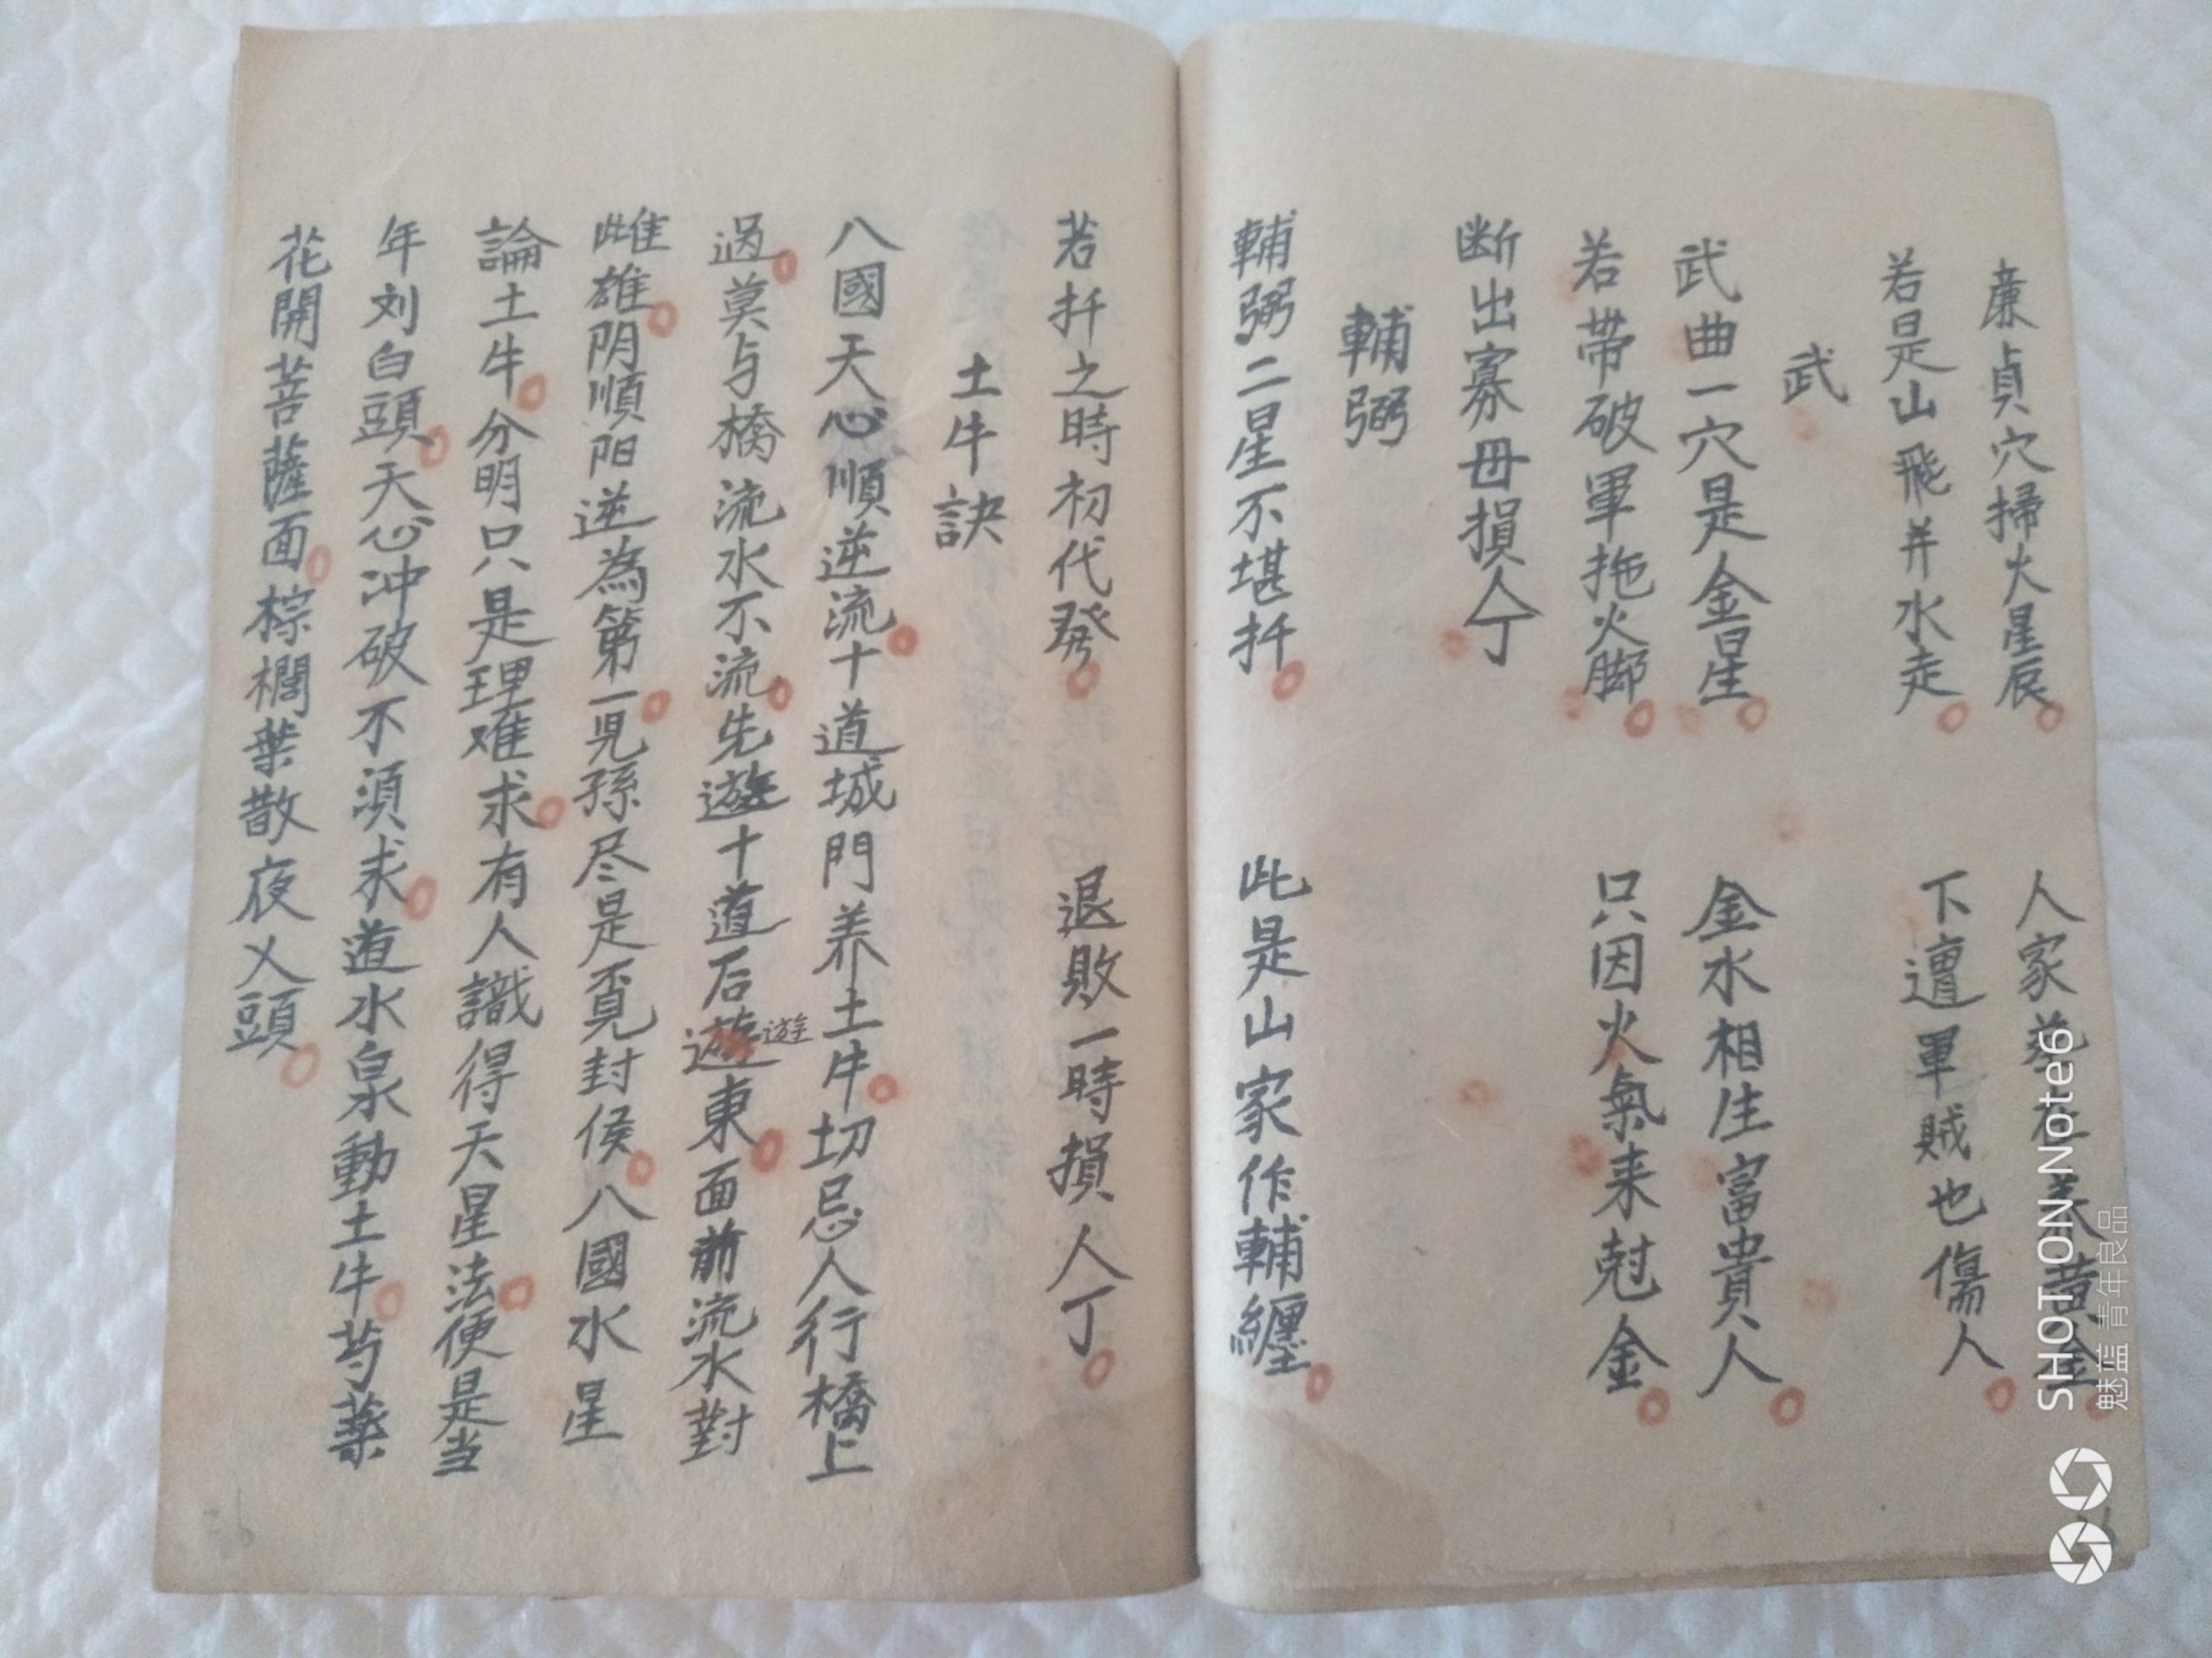 廉貞穴掃火星辰 人家葬 黄金
若是山飛并水走 下遭軍賊也傷人
武
武曲一穴是金星 金水相生富貴人
若帶破軍拖火脚 只因火氣来尅金
断出寡母損人丁
輔弼
輔弼二星不堪扦 此是山家作輔纏
若扦之時初代發 退敗一時損人丁
土牛訣
八國天心順逆流十道城門养土牛切忌人行橋上
過莫与橋流水不流先遊十道后遊東面前流水對
遊
雌雄阴順阳逆為第一児孫尽是覔封侯八國水星
論土牛分明只是理难求有人識得天星法便是当
年刘白頭天心冲破不須求道水泉動土牛芍藥
花開菩薩面棕櫚葉散夜乂頭
SHOT ON Note6
魅蓝 青年良品